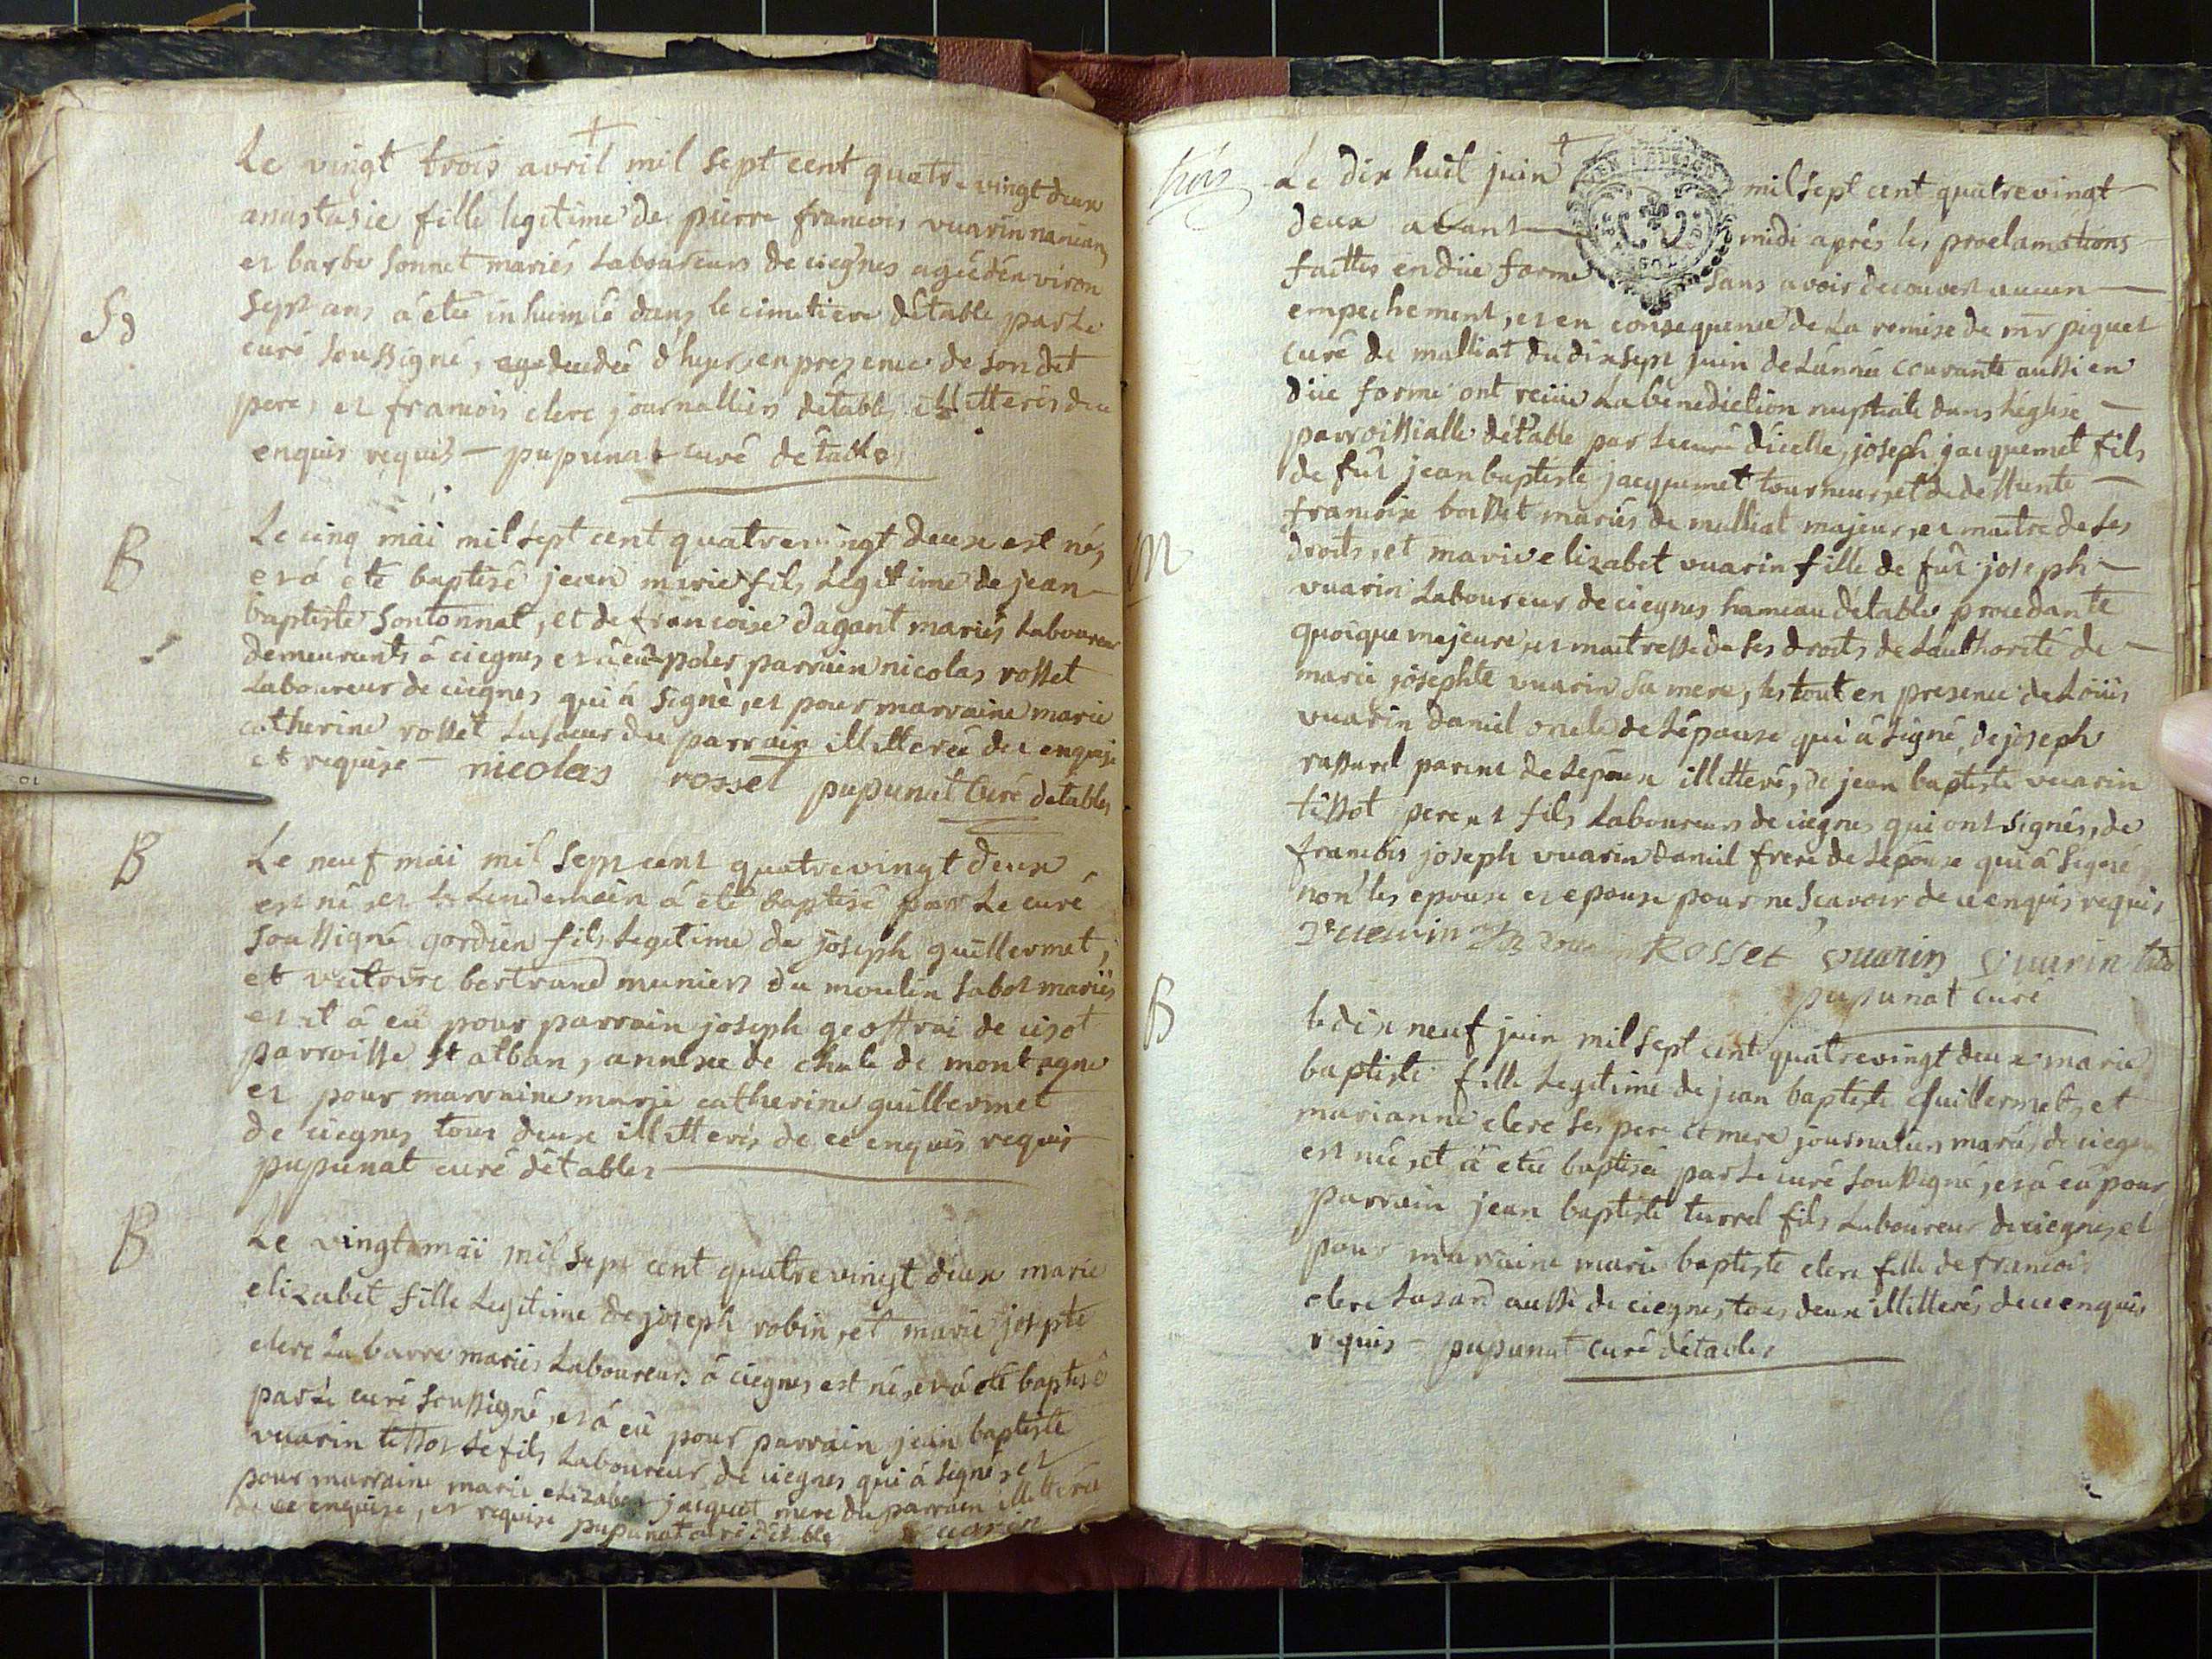 Le vingt trois avril mil sept cent quatre vingt deux
anastasie fille legitime de pierre francois vuarin
et barbe sonnet mariés Laboureurs de ciegnes agée d'environ
Sept ans á etée inhumée dans le cimetiere d'étable par Le
Sd
curé soussigné, decedée d'hyer, en presence de son dit
pere, et francois clerc journallier d'étables illitterés de ce
enquis requis — pupunat curé d'étables
B
Le cinq mäi mil sept cent quatre vingt deux est né,
et á eté baptisé jean marie fils Legitime de jean
baptiste sontonnat, et de francoise dagant mariés Laboureurs
demeurants á ciegnes et á eu pour parrain nicolas rosset
Laboureur de ciegnes qui á signé, et pour marraine marie
catherine rosset La soeur du parrain illitterée de ce enquise
et requise — nicolas rosset pupunat Curé d'étables
B
Le neuf mäi mil sept cent quatre vingt deux
est né et Le Lendemain á eté baptisé par Le curé
soussigné gordien fils Legitime de joseph guillermet,
et victoire bertrand muniers du moulin sabot mariés
et á eu pour parrain joseph geoffrai de
parroisse st alban, annexe de de montagne
et pour marraine marie catherine guillermet
de ciegnes tous deux illitterés de ce enquis requis
pupunat curé d'étables
B
Le vingt mäi mil sept cent quatre vingt deux marie
elizabet fille Legitime de joseph robin, et marie josepte
clerc La barre mariés Laboureurs á ciegnes est né, et á eté baptisé
par Le curé soussigné, et á eu pour parrain jean baptiste
vuarin tissot Le fils Laboureur de ciegnes qui á signé, et
pour marraine marie elizabet jacquet mere du parrain illitterée
de ce enquise, et requise pupunat curé d'étables vuarin
trois
Le dix huit juin mil sept cent quatre vingt
deux avant midi aprés les proclamations
faittes en düe forme sans avoir decouvert aucun
empechement, et en consequence de La remise de mr piquet
curé de malliat du dix sept juin de L'année courante aussi en
düe forme ont reçüe La bénediction nuptiale dans L'église
parroissialle d'étable par Le curé d'icelle, joseph jacquemet fils
de fût jean baptiste jacquemet tourneur, et de deffunte
francoise bosset mariés de malliat majeur, et maitre de ses
M
droits, et marie elizabet vuarin fille de fût joseph
vuarin Laboureur de ciegnes hameau d'étables procedante
quoique majeure, et maitresse de ses droits de L'authorité de
marie josephte vuarin sa mere, Les tout en presence de Loüis
vuarin daniel oncle de L'épouse qui á signé, de joseph
parent de L'épouse illitteré, de jean baptiste vuarin
tissot pere et fils Laboureurs de ciegnes qui ont signés, de
francois joseph vuarin daniel frere de L'épouse qui á signé
non les epoux et epouse pour ne scavoir de ce enquis requis
Rosset vuarin vuarin
pupunat curé
B
le dix neuf juin mil sept cent quatre vingt deux marie
baptiste fille Legitime de jean baptiste Guillermet, et
marianne clerc ses pere et mere journaliers mariés de ciegnes
est née, et á etée baptisée par Le curé soussigné, et á eu pour
parrain jean baptiste turrel fils Laboureur de ciegnes, et
pour marraine marie baptiste clerc fille de francois
clerc aussi de ciegnes, tous deux illitterés de ce enquis
requis — pupunat curé d'étables